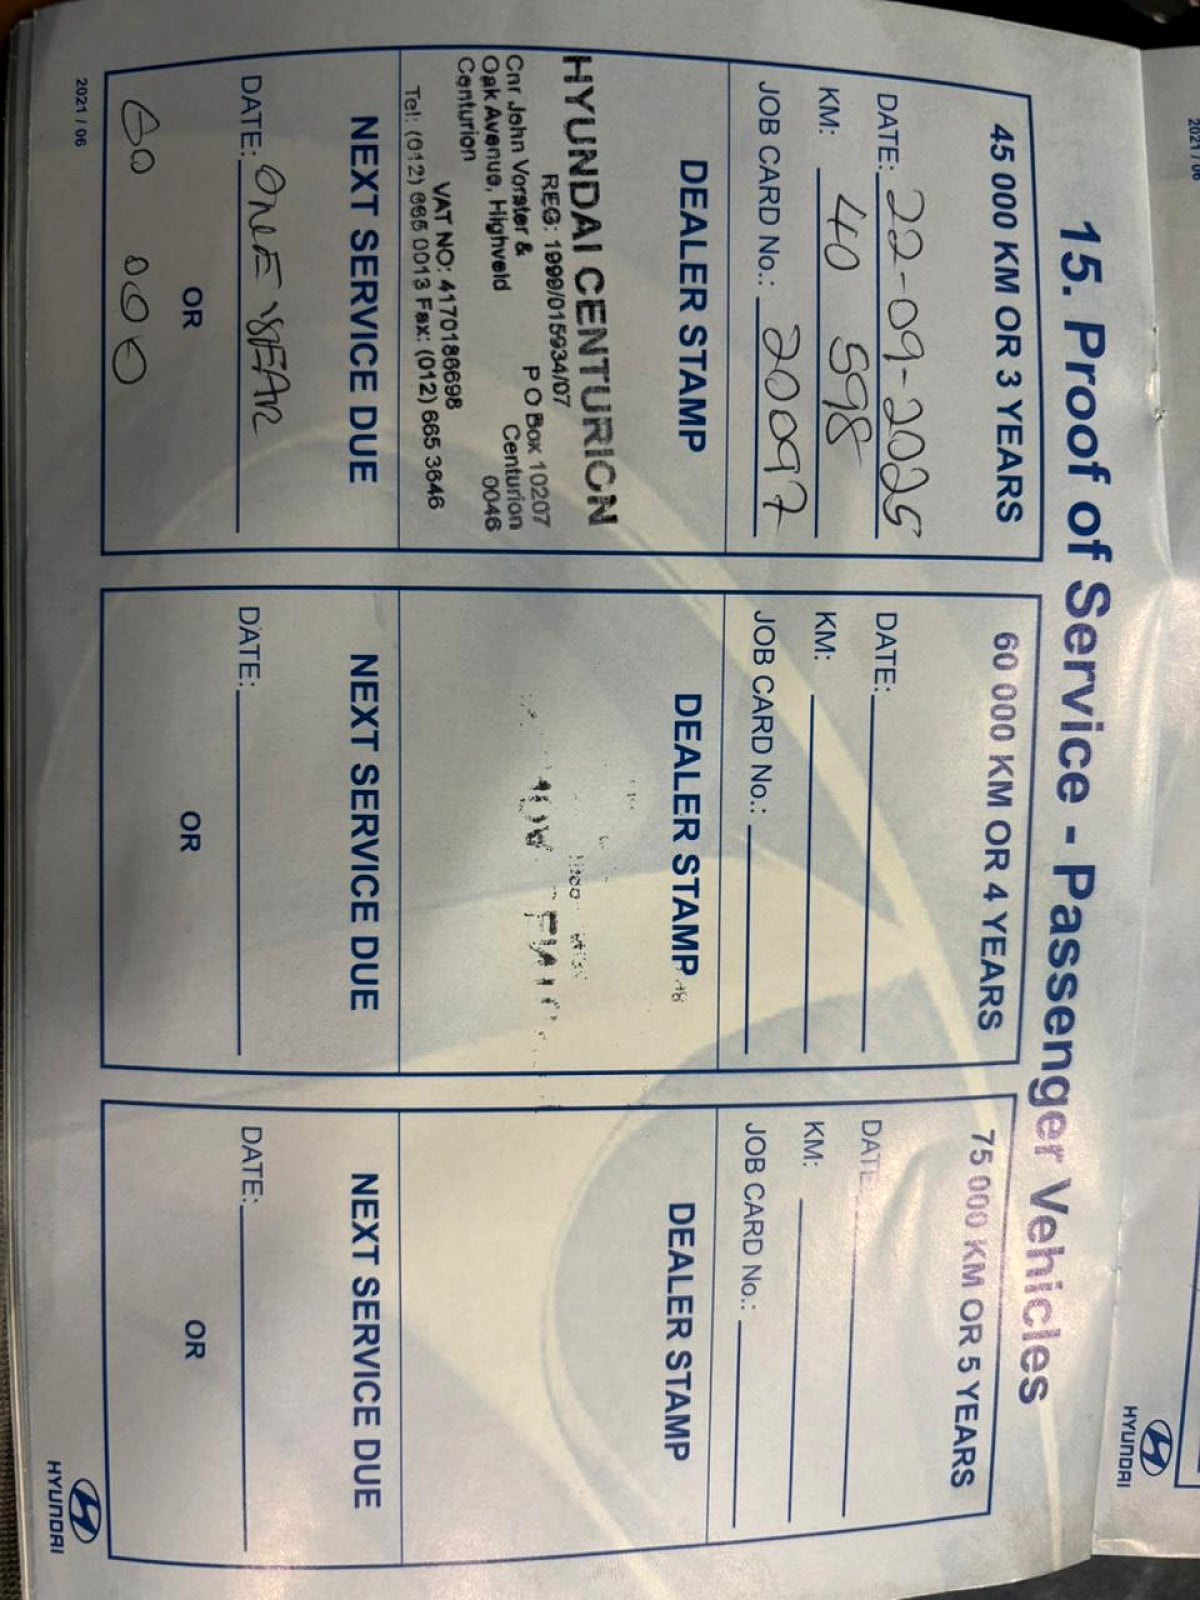 15. Proof of Service - Passenger Vehicles
45 000 KM OR 3 YEARS
DATE: 22-09-2025
KM: 40 598
JOB CARD No.: 20097
DEALER STAMP
HYUNDAI CENTURION
REG: 1999/015934/07
Cnr John Vorster & P O Box 10207
Oak Avenue, Highveld Centurion
Centurion 0046
VAT NO: 4170186698
Tel: (012) 665 0013 Fax: (012) 665 3646
NEXT SERVICE DUE
DATE: ONE YEAR
OR
60 000
60 000 KM OR 4 YEARS
DATE:
KM:
JOB CARD No.:
DEALER STAMP
NEXT SERVICE DUE
DATE:
OR
75 000 KM OR 5 YEARS
DATE
KM:
JOB CARD No.:
DEALER STAMP
NEXT SERVICE DUE
DATE:
OR
2021 / 06
HYUNDAI
2021 / 06
HYUNDAI